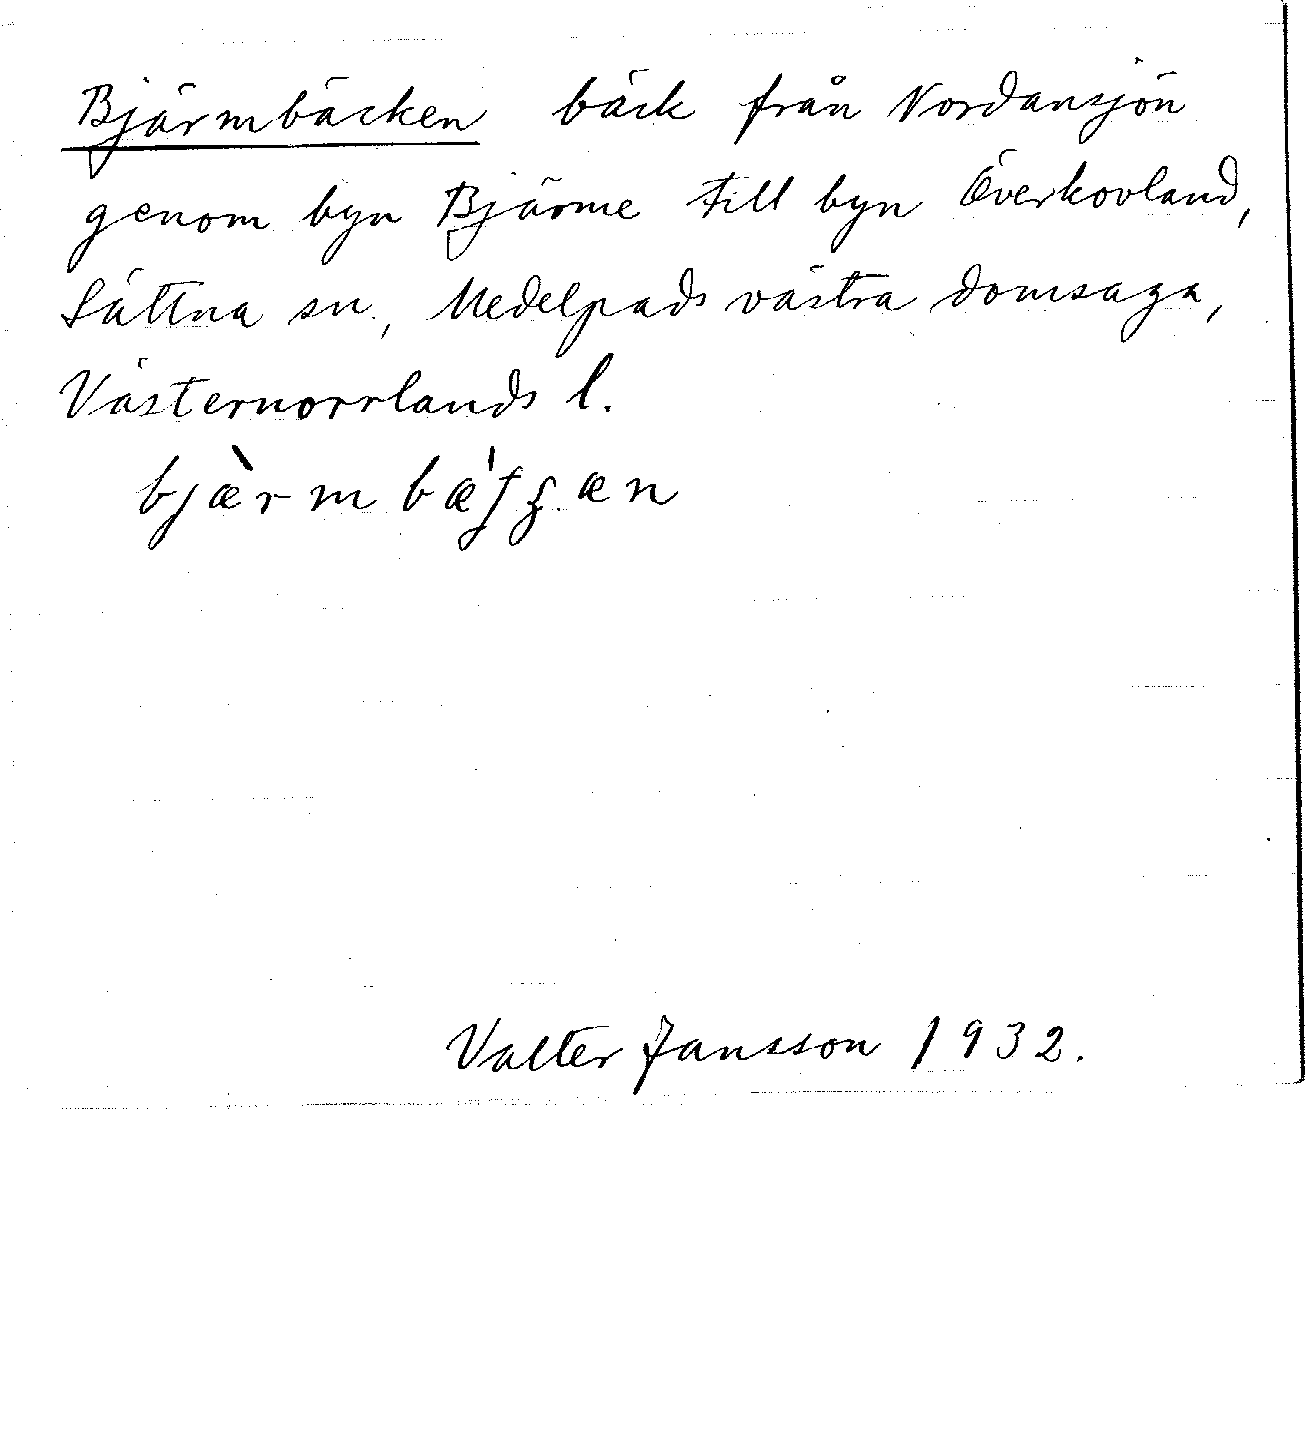 Bjärmbäcken bäck från Nordansjön
genom byn Bjärme till byn Överkovland,
Sättna sn, Medelpads västra domsaga,
Västernorrlands l.
Valter Jansson 1932.